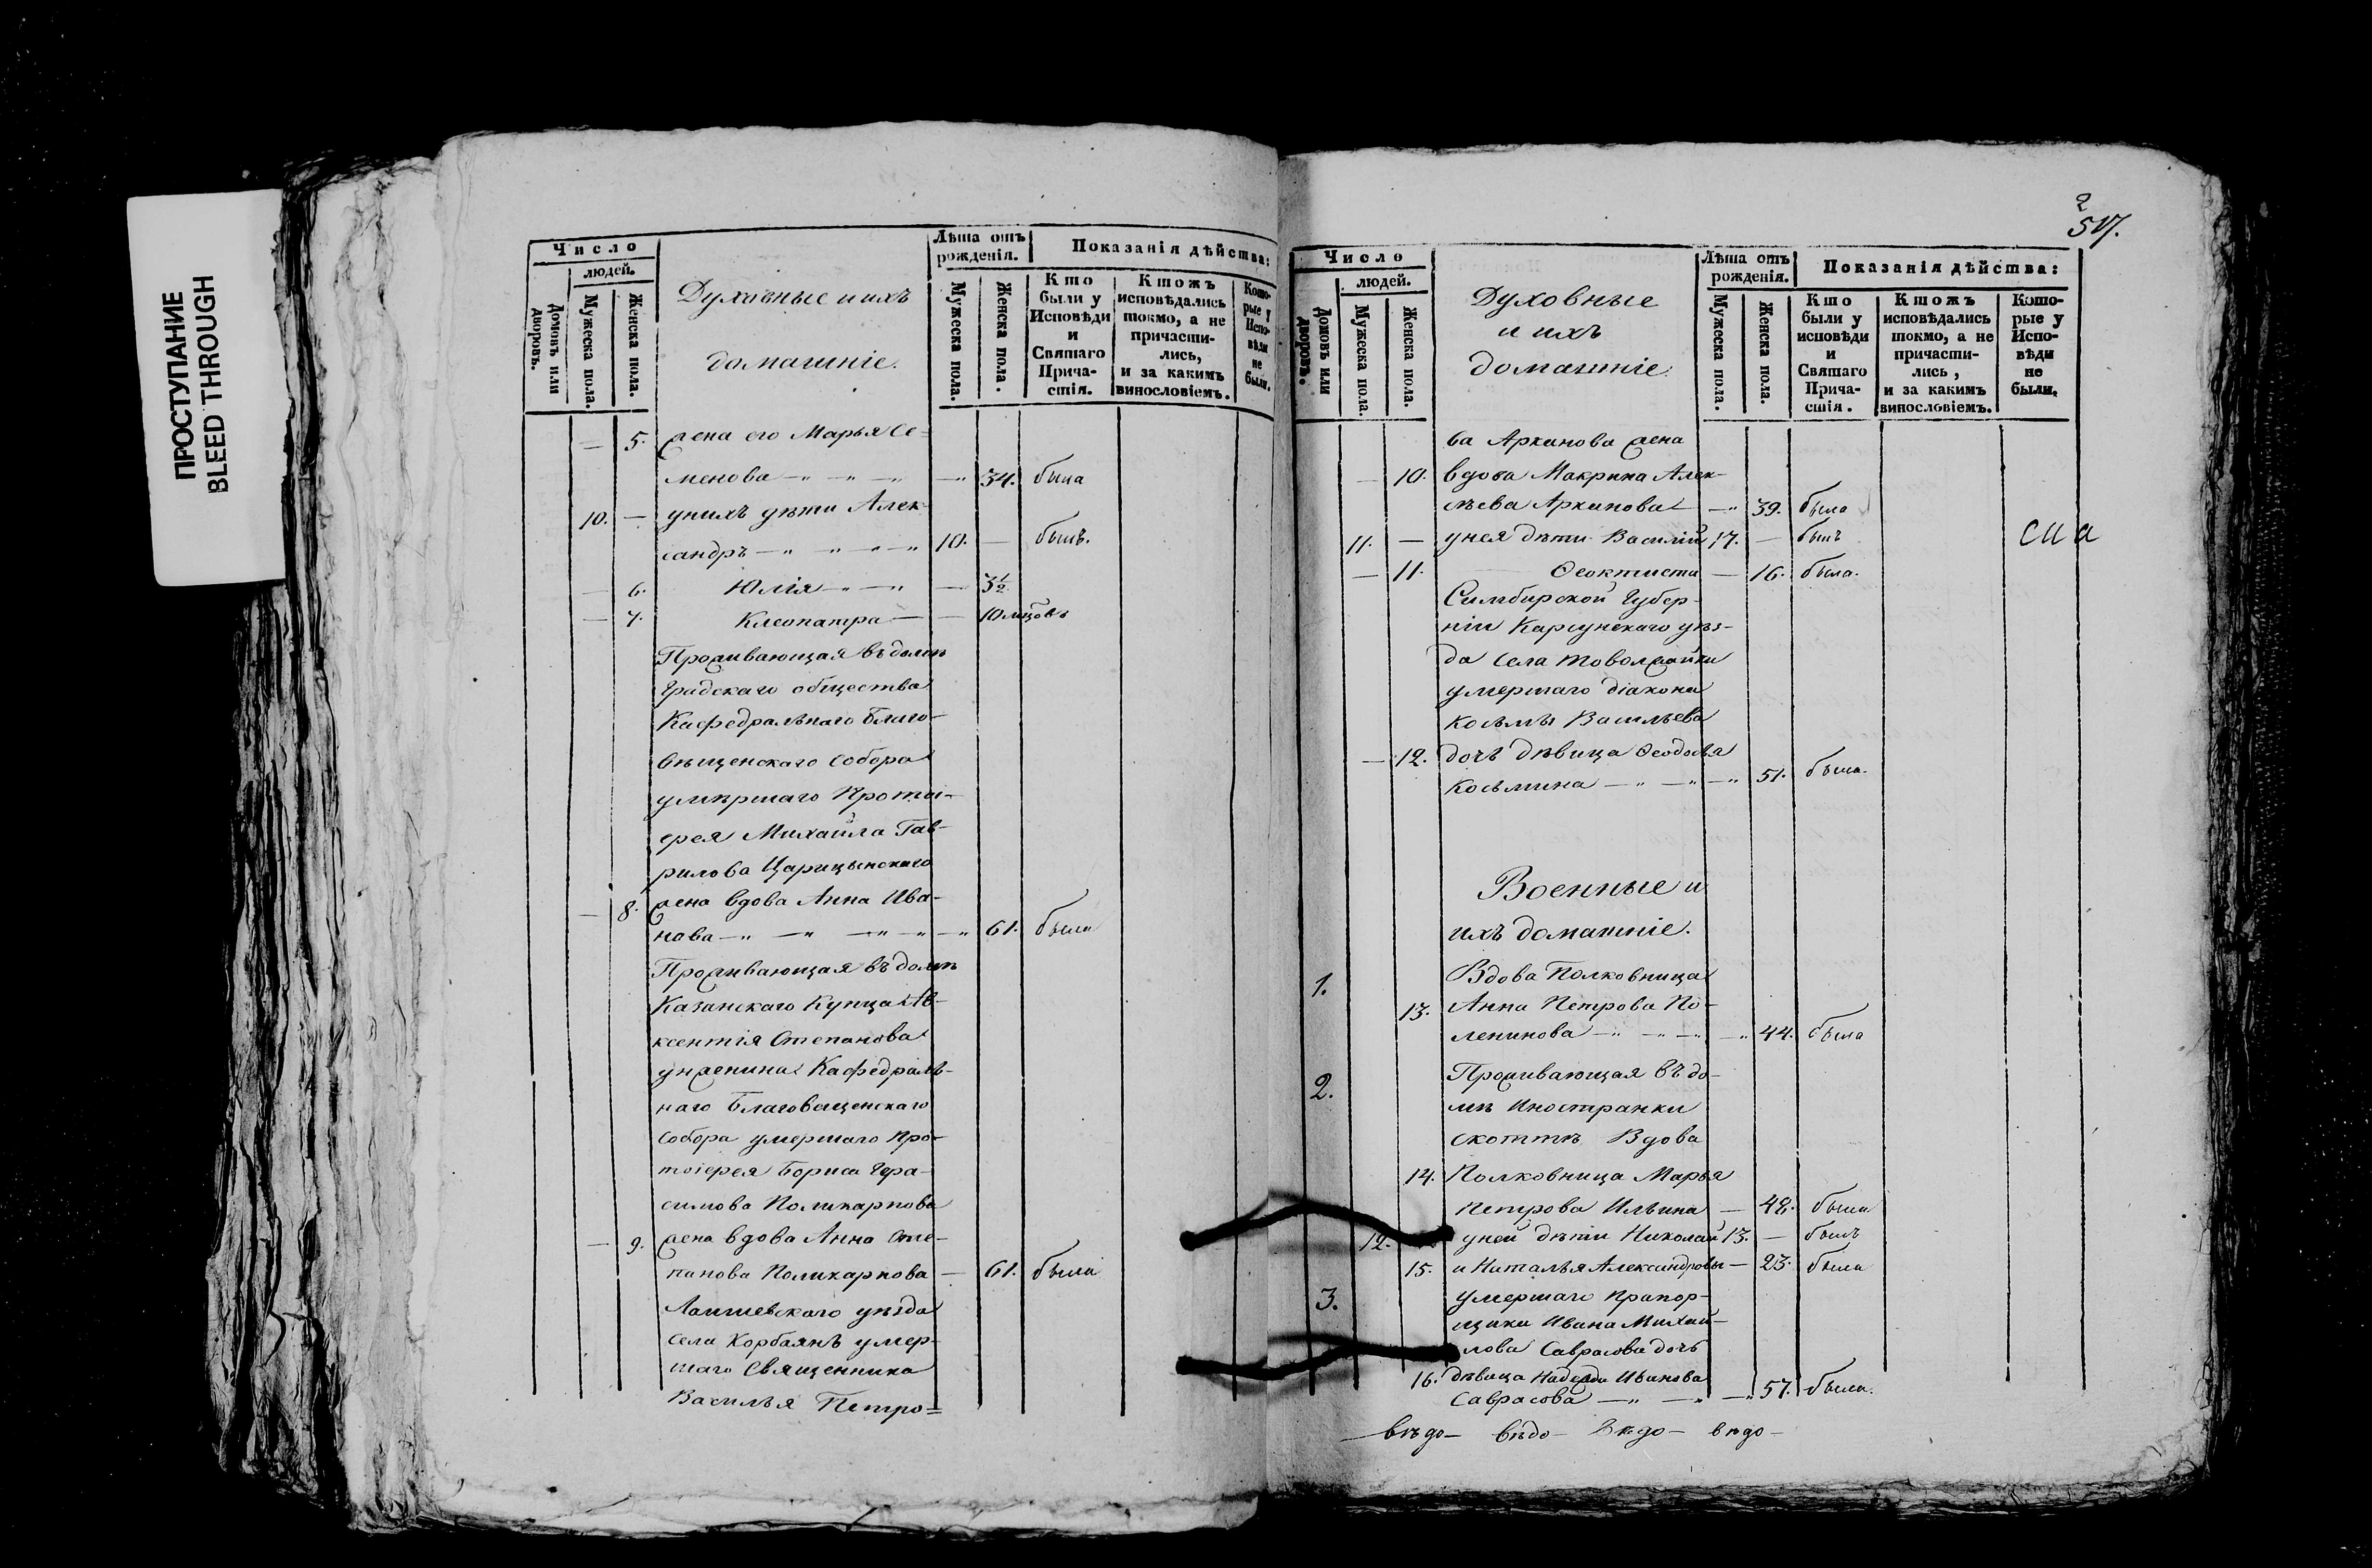 ПРОСТУПАНИЕ
BLEED THROUGH
Число
людей.
Домовъ или дворовъ.
Мужеска пола.
Женска пола.
Духовные и ихъ
домашніе.
Лѣта отъ рожденія.
Мужеска пола.
Женска пола.
Показанія дѣйства:
Кто были у Исповѣди и Святаго Причастія.
Ктожъ исповѣдались токмо, а не причастились, и за какимъ винословіемъ.
Которые у Исповѣди не были.
— 5. жена его Марья Се-
менова — 34. была
10. — у нихъ дѣти Алек-
сандръ 10. — былъ.
— 6. Юлія — 3½
— 7. Клеопатра — 10 мѣцовъ
Проживающая въ домѣ
Градскаго общества
Кафедральнаго Благо-
вѣщенскаго Собора
умѣршаго Протоі-
ерея Михаила Гав-
рилова Царицынскаго
— 8. жена вдова Анна Ива-
нова — 61. была
Проживающая въ домѣ
Казанскаго Купца Ав-
ксентія Степанова
Унженина Кафедраль-
наго Благовещенскаго
Собора умершаго Про-
тоіерея Бориса Гера-
симова Поликарпова
— 9. жена вдова Анна Сте-
панова Поликарпова — 61. была
Лаишевскаго уѣзда
села Корбаянъ умер-
шаго Священника
Василья Петро=
2
517.
Число
людей.
Домовъ или дворовъ.
Мужеска пола.
Женска пола.
Духовные
и ихъ
домашніе.
Лѣта отъ рожденія.
Мужеска пола.
Женска пола.
Показанія дѣйства:
Кто были у исповѣди и Святаго Причастія.
Ктожъ исповѣдались токмо, а не причастились, и за какимъ винословіемъ.
Которые у Исповѣди не были.
ва Архинова жена
— 10. вдова Макрина Алек-
сѣева Архинова — 39. была
11. — у нея дѣти Василій 17. — былъ
— 11. Ѳеоктиста — 16. была.
Симбирской Губер-
ніи Карсунскаго уѣз-
да села
умершаго діакона
Косьмы Васильева
— 12. дочь дѣвица Ѳеодосья
Косьмина — 51. была.
Военные и
ихъ домашніе.
1. Вдова Полковница
13. Анна Петрова По-
ленинова — 44. была
2. Проживающая въ до-
мѣ Иностранки
Скоттъ Вдова
14. Полковница Марья
Петрова Ильина — 48. была
12. у ней дѣти Николай 13. — былъ
15. и Наталья Александровы — 23. была
3. умершаго Прапор-
щика Ивана Михай-
лова Саврасова дочь
16. дѣвица Надежда Иванова
Саврасова — 57. была.
вѣдо- вѣдо- вѣдо- вѣдо-